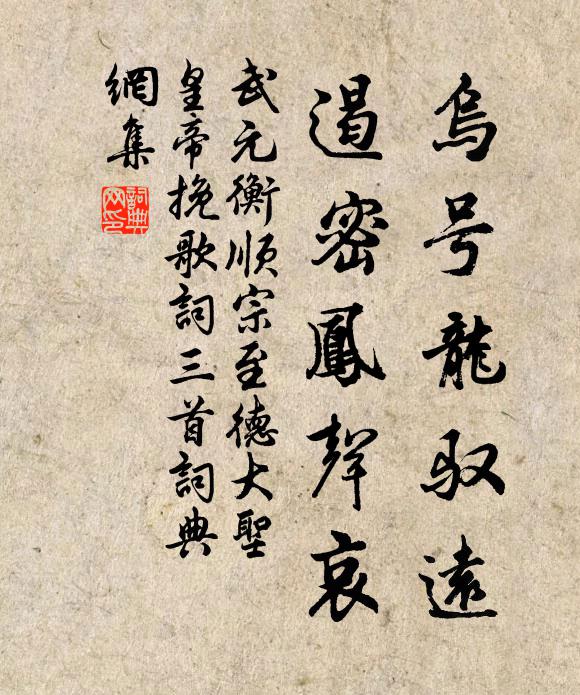 烏号龍馭遠
遏密鳳聲哀
武元衡順宗至德大聖
皇帝挽歌詞三首詞典
網集
詞典
网印